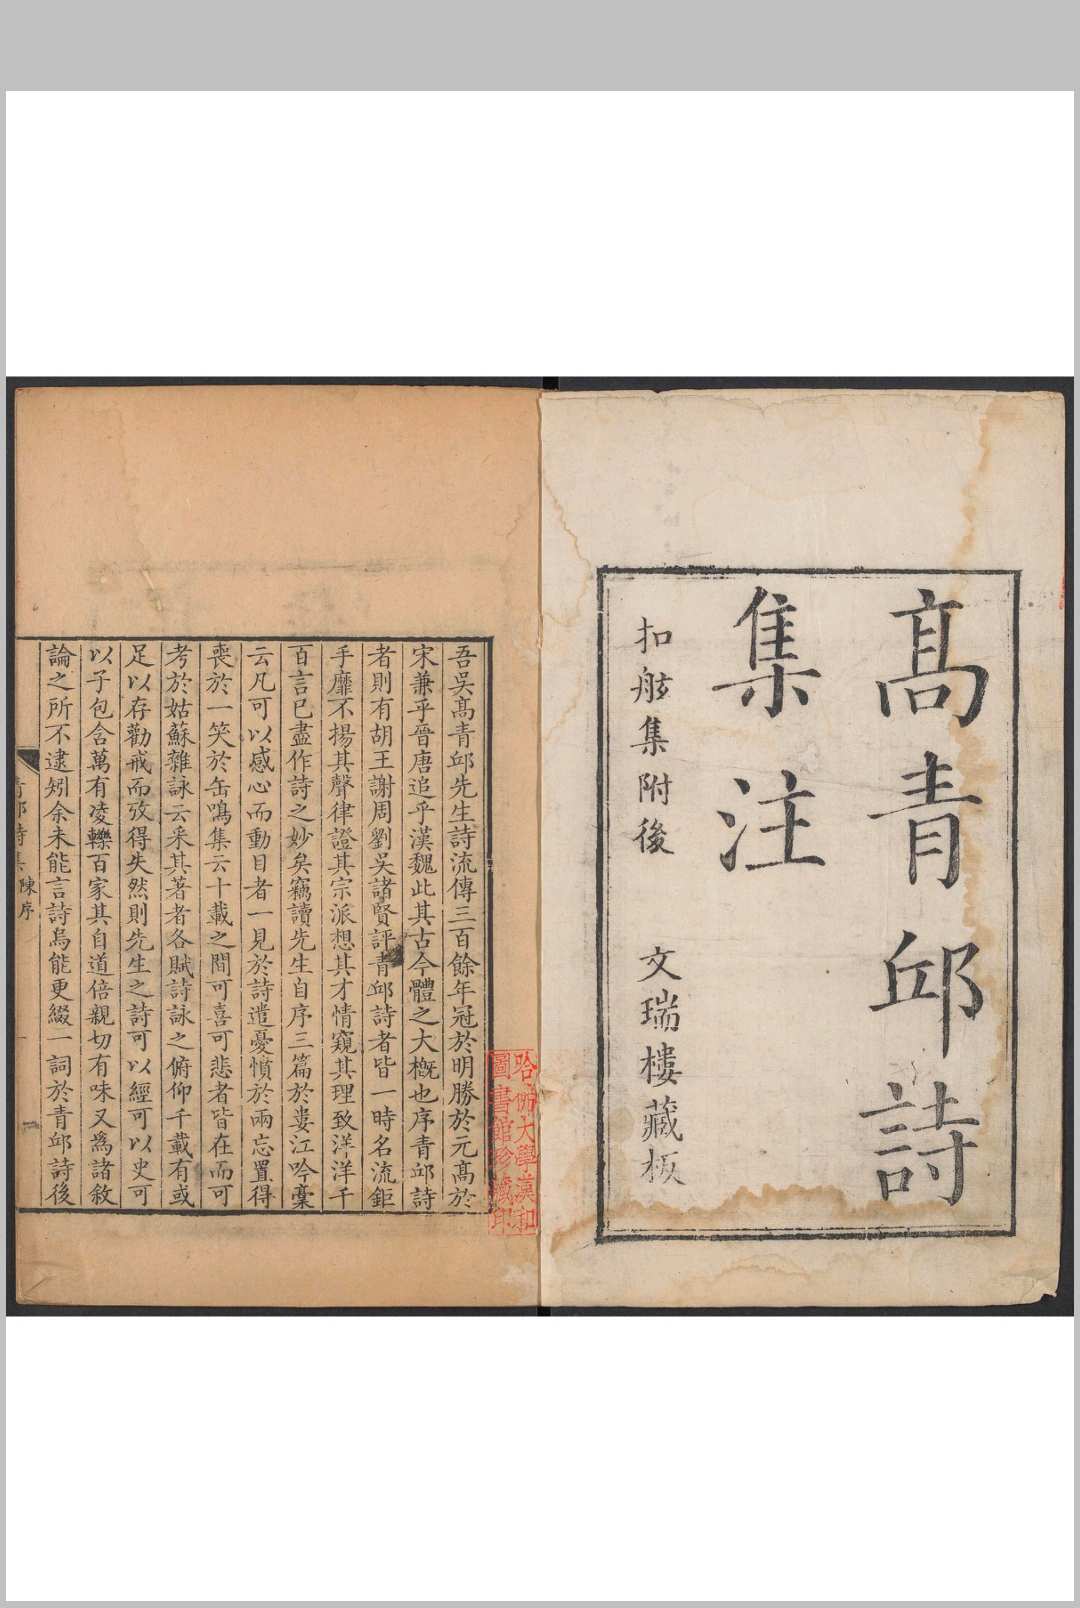 髙青邱詩
集注
扣舷集附後　文瑞樓藏板
吾吳髙青邱先生詩流傳三百餘年冠於明勝於元髙於
宋兼乎晉唐追乎漢魏此其古今體之大槪也序青邱詩
者則有胡王謝周劉吳諸賢評青邱詩者皆一時名流鉅
手靡不揚其聲律證其宗派想其才情窺其理致洋洋千
百言已盡作詩之妙矣竊讀先生自序三篇於婁江吟稾
云凡可以感心而動目者一見於詩遣憂憤於兩忘置得
喪於一笑於缶鳴集云十載之間可喜可悲者皆在而可
考於姑蘇雜詠云采其著者各賦詩詠之俯仰千載有或
足以存勸戒而攷得失然則先生之詩可以經可以史可
以子包含萬有凌轢百家其自道倍親切有味又爲諸敘
論之所不逮矧余未能言詩烏能更綴一詞於青邱詩後
青邱詩集 陳序 一
哈佛大學漢和
圖書館珍藏印